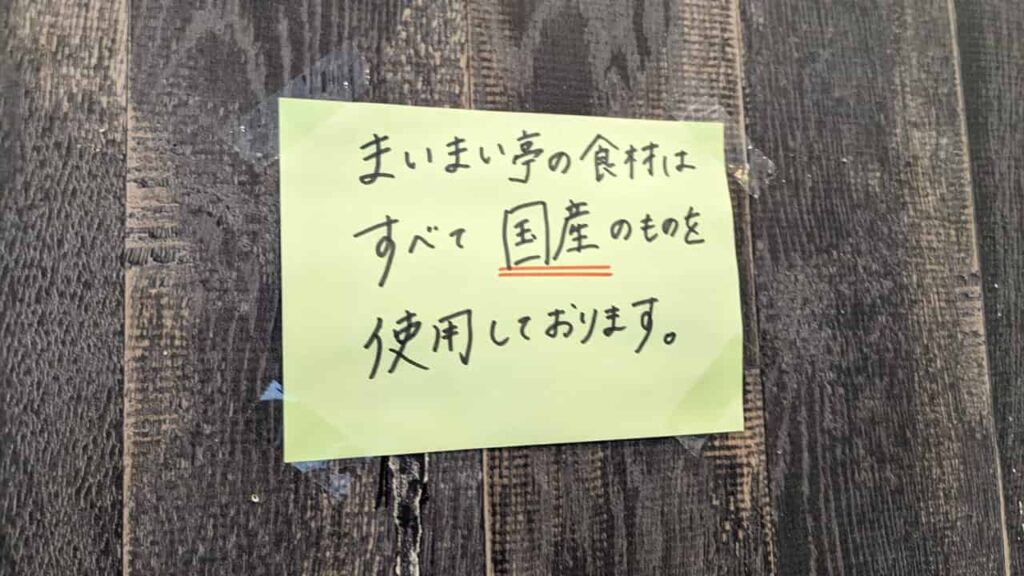 まいまい亭の食材は
すべて国産のものを
使用しております。